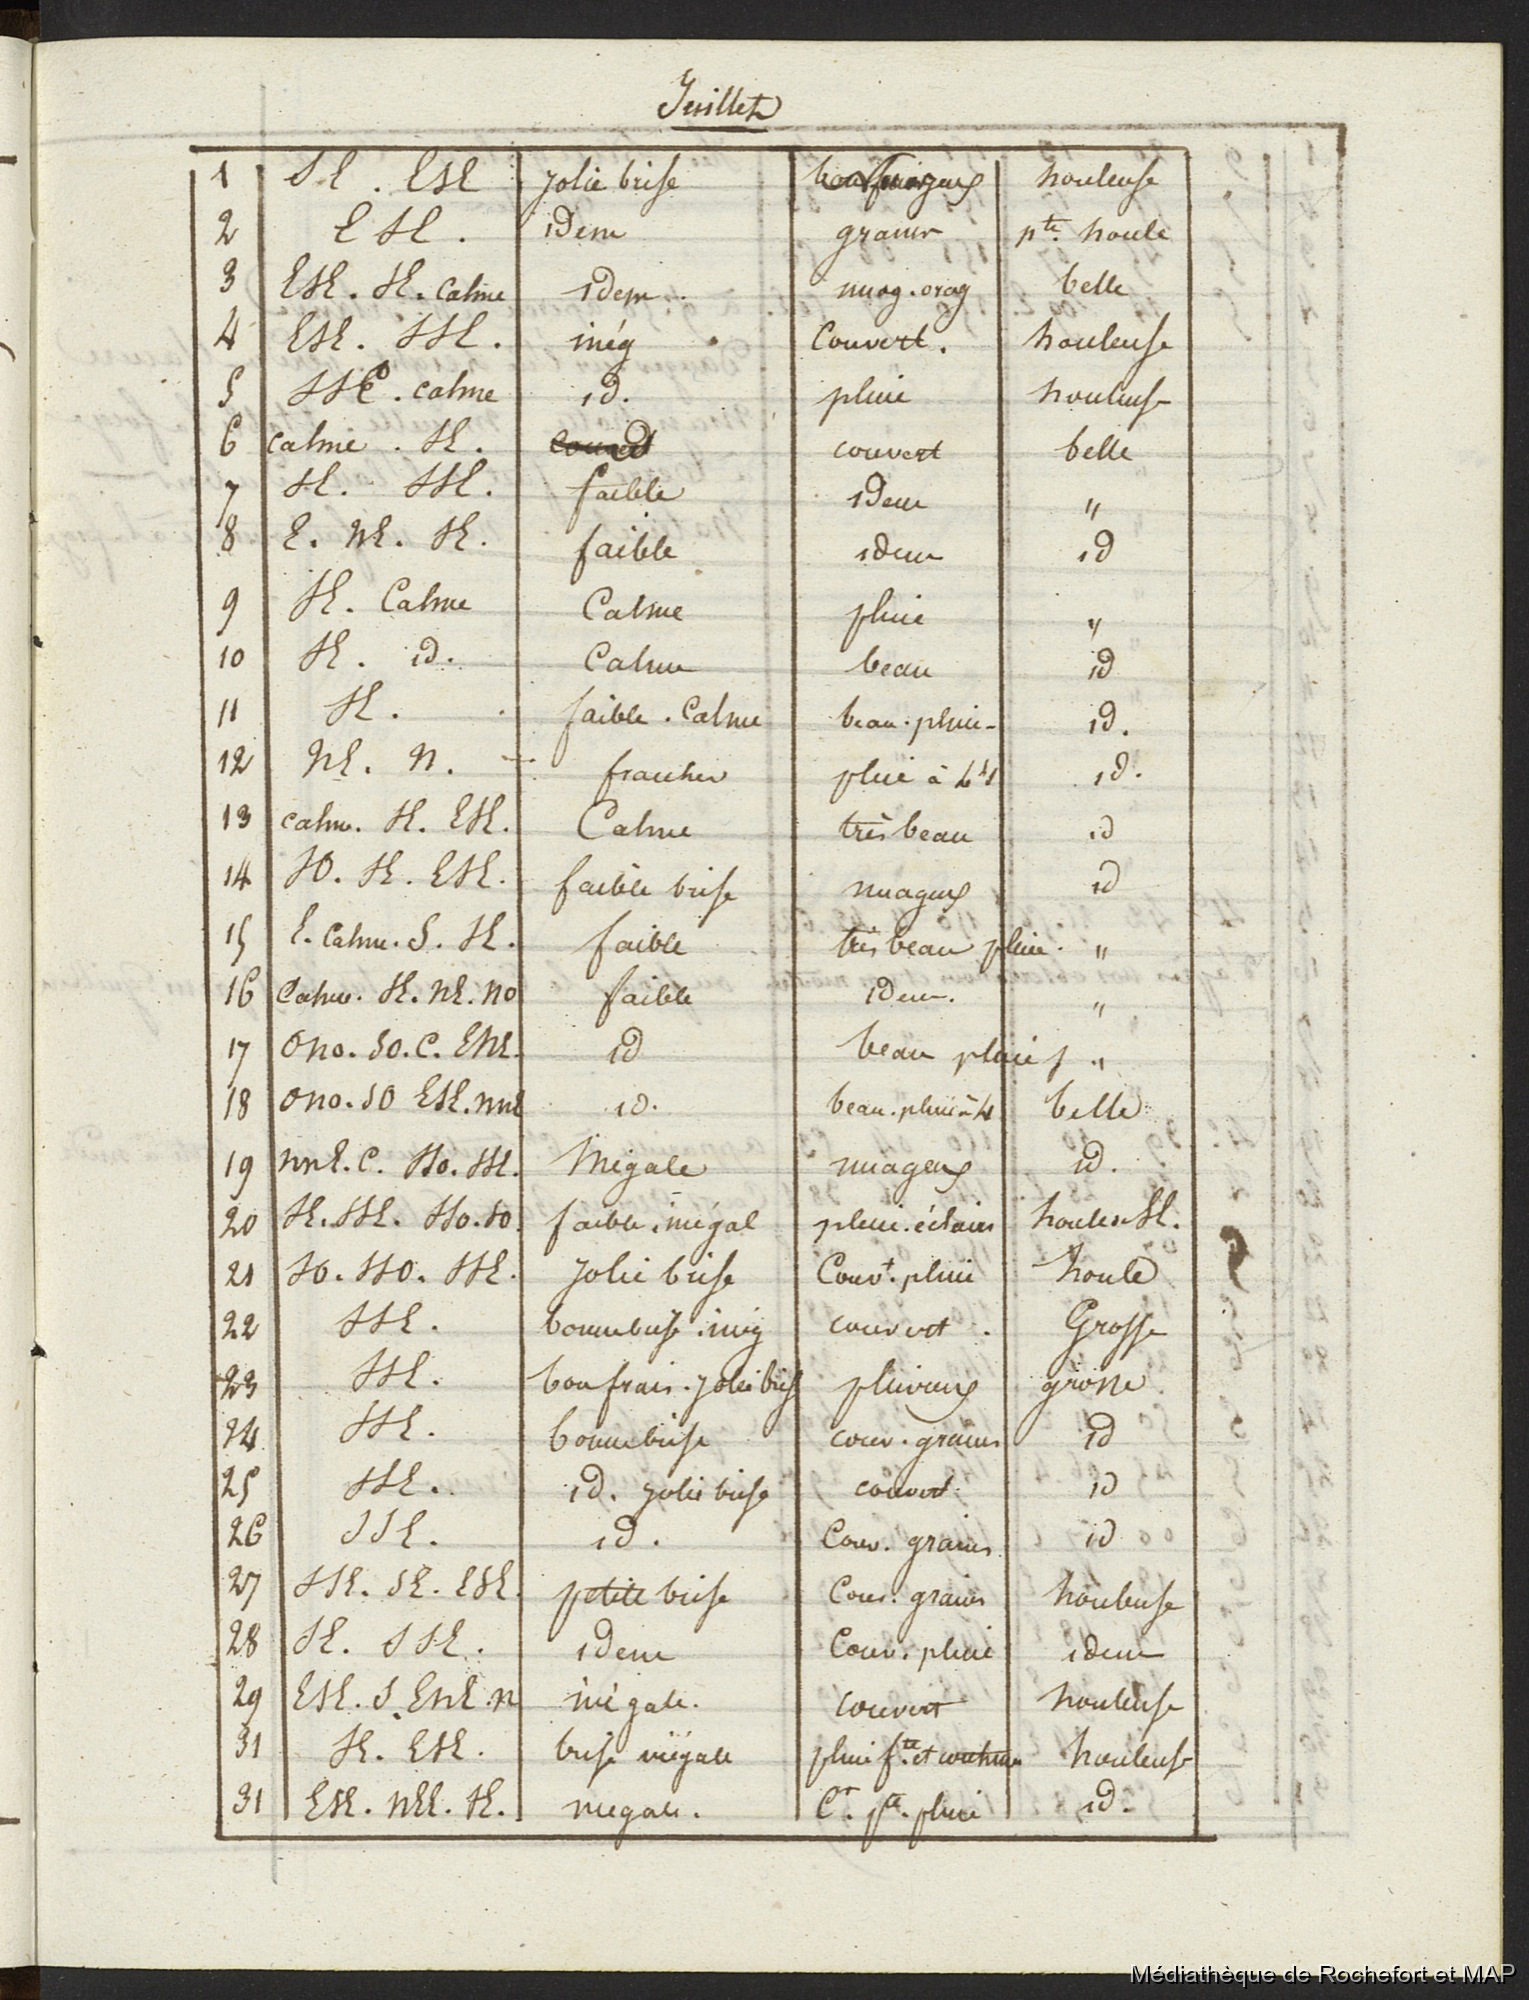 Juillet
1 SE . ESE jolie brise nuageux houleuse
2 ESE . idem grains pte houle
3 ESE . SE . calme idem . nuag . orag belle
4 ESE . SSE . inég Couvert . houleuse
5 SSE . calme id . pluie houleuse
6 calme . SE . couvert belle
7 SE . SSE . faible idem "
8 E . NE . SE . faible idem id
9 SE . Calme Calme pluie "
10 SE . id . Calme beau id
11 SE . faible . Calme beau . pluie - id .
12 NE . N . fraiches pluie à 4h id .
13 calme . SE . ESE . Calme très beau id
14 SO . SE . ESE . faible brise nuageux id
15 E . Calme . S . SE . faible très beau pluie . "
16 Calme . SE . NE . NO faible idem . "
17 ONO . SO . C . ENE . id beau pluie "
18 ONO . SO ESE . NNE id . beau . pluie à 4 belle
19 NNE . C . SSO . SSE . Inégale nuageux id .
20 SE . SSE . SSO . SO . faible . inégal pluie . éclairs houle SE .
21 SO . SSO . SSE . jolie brise Couvt . pluie houle
22 SSE . bonne brise . inég couvert . Grosse
23 SSE . bon frais . jolie brise pluvieux grosse
24 SSE . bonne brise couv . grains id
25 SSE . id . jolie brise couvert id
26 SSE . id . Couv . grains id
27 SSE . SE . ESE . petite brise Couv . grains houleuse
28 SE . SSE . idem Couv . pluie idem
29 ESE . S . ENE . N inégale . couvert houleuse
31 SE . ESE . brise inégale pluie fte et continue houleuse
31 ESE . NEE . SE . inegale . Cr . pte . pluie id .
Médiathèque de Rochefort et MAP